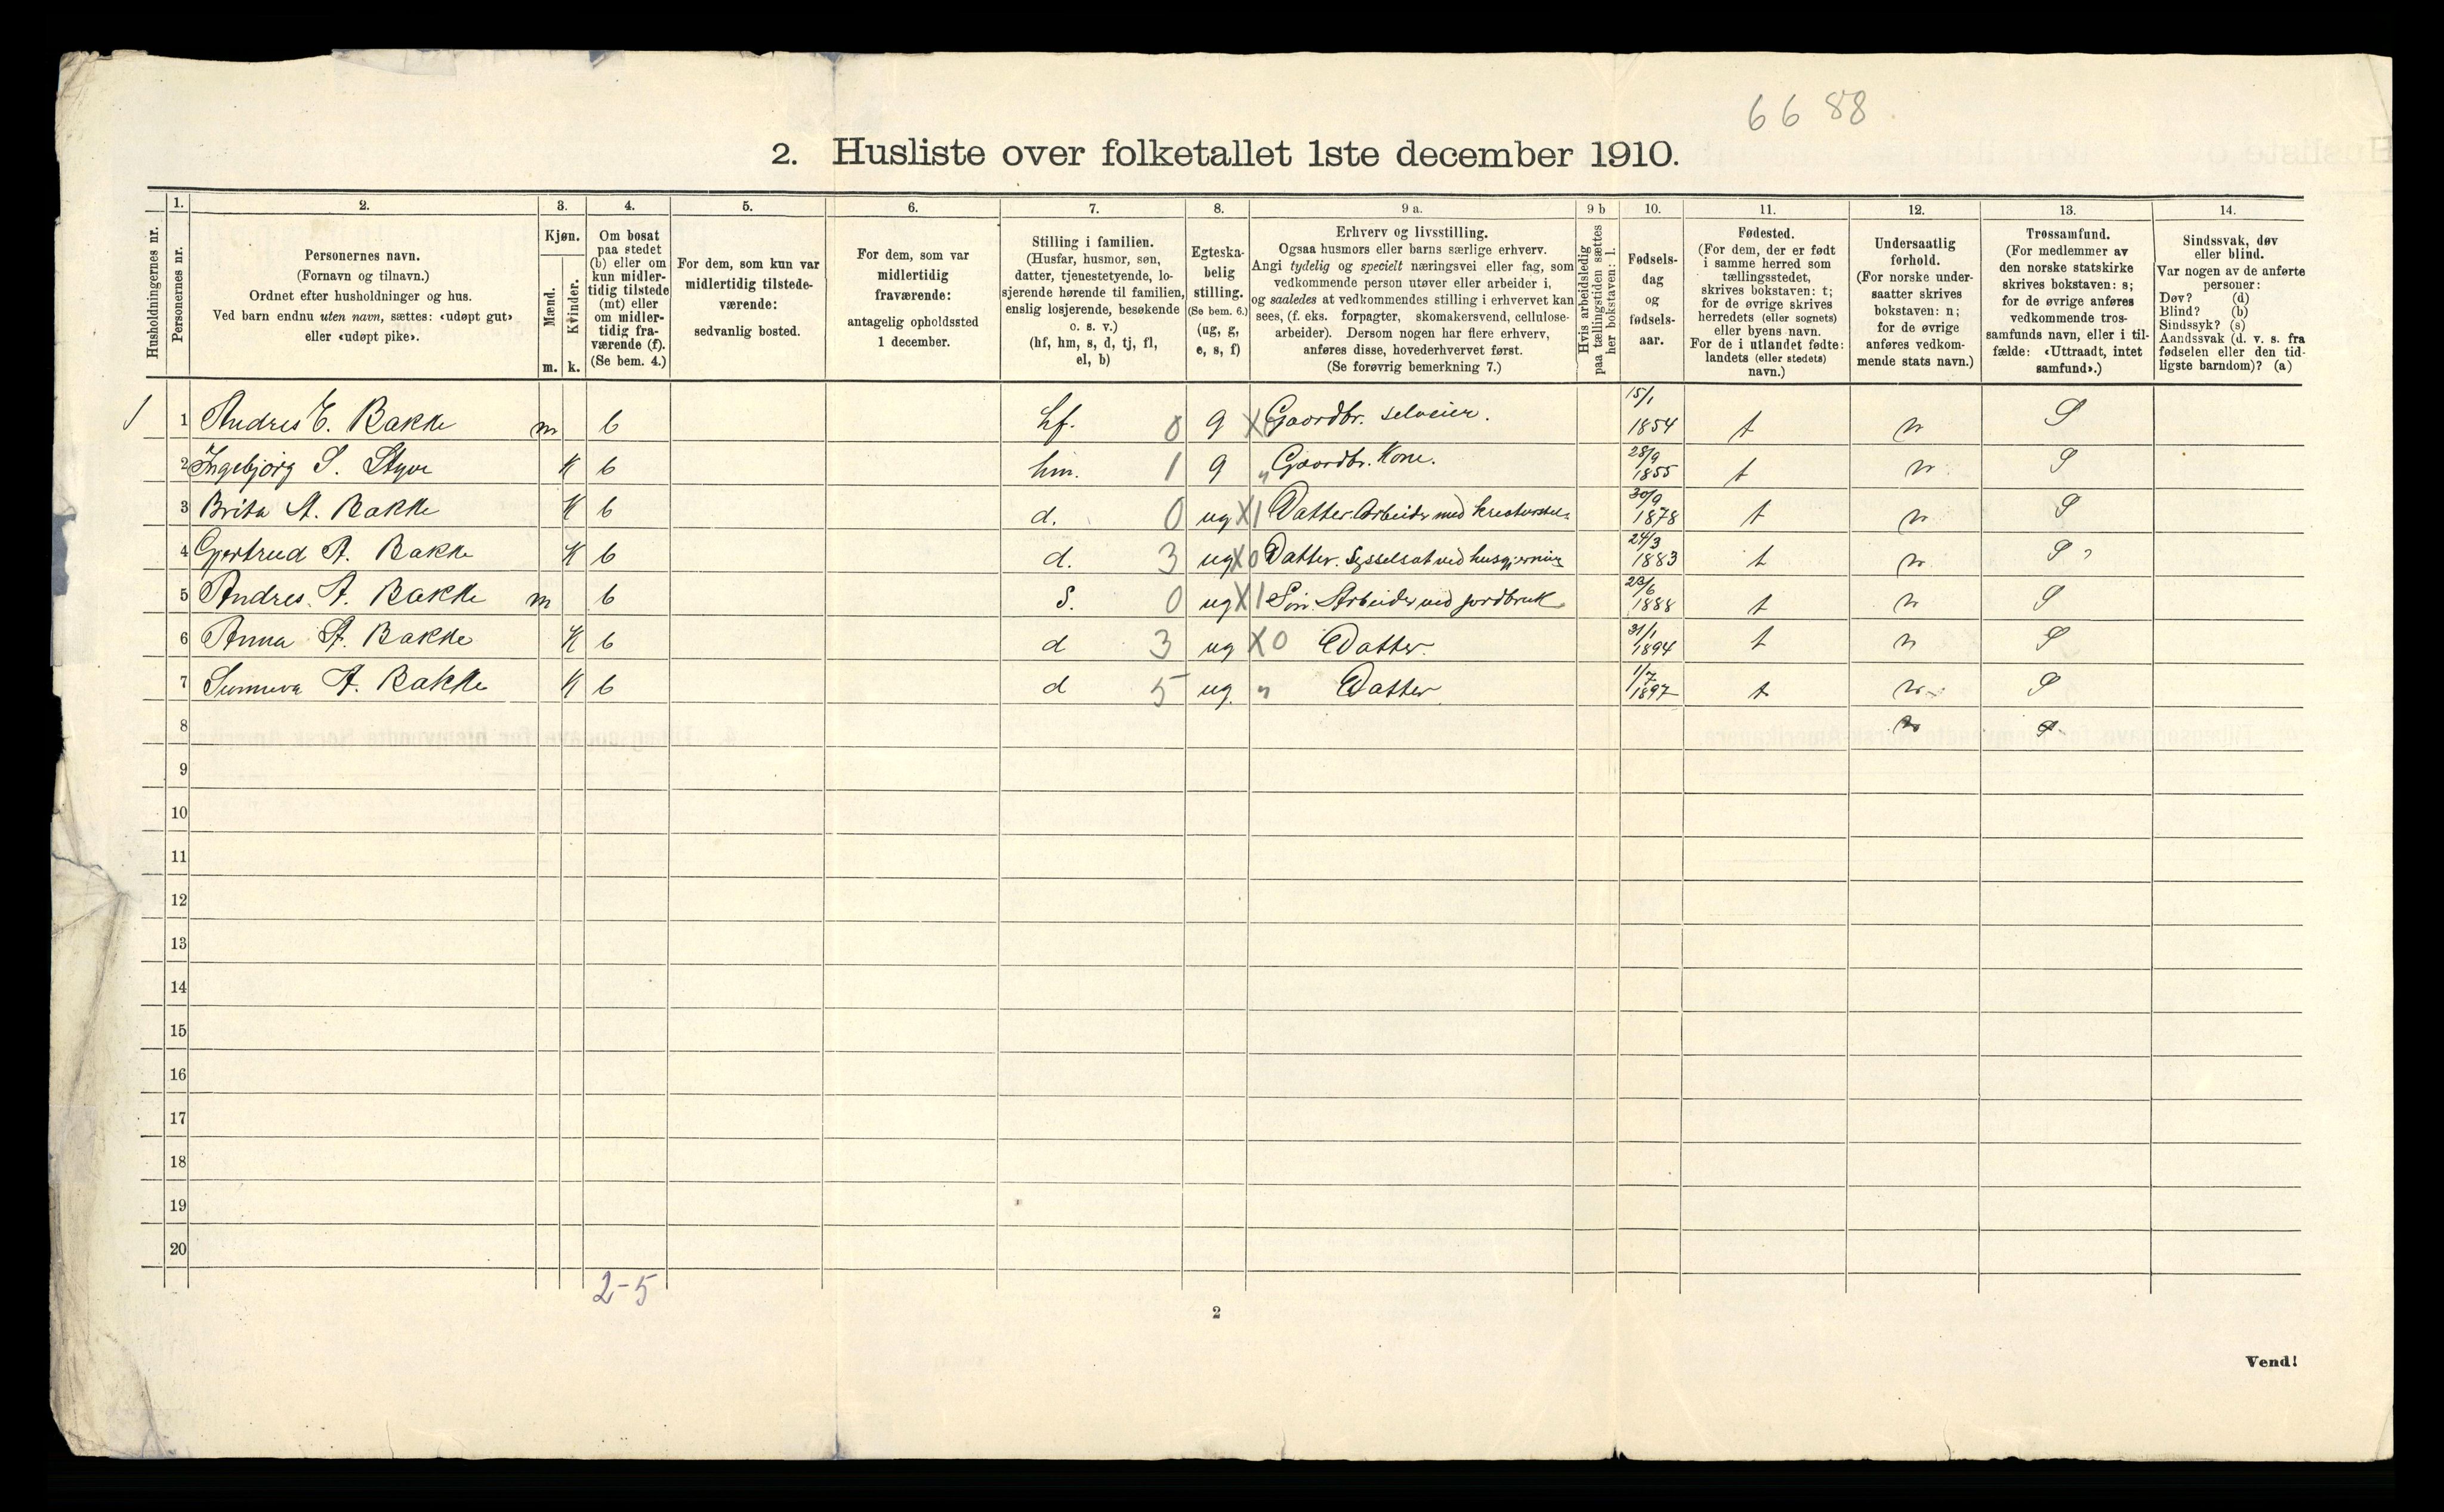 6 6 88
2. Husliste over folketallet 1ste december 1910.
Husholdningernes nr.
1.
Personernes nr.
2.
Personernes navn.
(Fornavn og tilnavn.)
Ordnet efter husholdninger og hus.
Ved barn endnu uten navn, sættes: «udøpt gut»
eller «udøpt pike».
3.
Kjøn.
Mænd.
Kvinder.
m. k.
4.
Om bosat
paa stedet
(b) eller om
kun midler-
tidig tilstede
(mt) eller
om midler-
tidig fra-
værende (f).
(Se bem. 4.)
5.
For dem, som kun var
midlertidig tilstede-
værende:
sedvanlig bosted.
6.
For dem, som var
midlertidig
fraværende:
antagelig opholdssted
1 december.
7.
Stilling i familien.
(Husfar, husmor, søn,
datter, tjenestetyende, lo-
sjerende hørende til familien,
enslig losjerende, besøkende
o. s. v.)
(hf, hm, s, d, tj, fl,
el, b)
8.
Egteska-
belig
stilling.
(Se bem. 6.)
(ug, g,
e, s, f)
9 a.
Erhverv og livsstilling.
Ogsaa husmors eller barns særlige erhverv.
Angi tydelig og specielt næringsvei eller fag, som
vedkommende person utøver eller arbeider i,
og saaledes at vedkommendes stilling i erhvervet kan
sees, (f. eks. forpagter, skomakersvend, cellulose-
arbeider). Dersom nogen har flere erhverv,
anføres disse, hovederhvervet først.
(Se forøvrig bemerkning 7.)
9 b
Hvis arbeidsledig
paa tællingstiden sættes
her bokstaven: l.
10.
Fødsels-
dag
og
fødsels-
aar.
11.
Fødested.
(For dem, der er født
i samme herred som
tællingsstedet,
skrives bokstaven: t;
for de øvrige skrives
herredets (eller sognets)
eller byens navn.
For de i utlandet fødte:
landets (eller stedets)
navn.)
12.
Undersaatlig
forhold.
(For norske under-
saatter skrives
bokstaven: n;
for de øvrige
anføres vedkom-
mende stats navn.)
13.
Trossamfund.
(For medlemmer av
den norske statskirke
skrives bokstaven: s;
for de øvrige anføres
vedkommende tros-
samfunds navn, eller i til-
fælde: «Uttraadt, intet
samfund».)
14.
Sindssvak, døv
eller blind.
Var nogen av de anførte
personer:
Døv? (d)
Blind? (b)
Sindssyk? (s)
Aandssvak (d. v. s. fra
fødselen eller den tid-
ligste barndom)? (a)
1 1 Andres E. Bakke m b hf. 0 g X Gaardbr. selveier. 15/1 1854 t n S
2 Ingebjørg S. Styve K b hm. 1 g " Gaardbr. Kone. 28/9 1855 t n S
3 Brita A. Bakke K b d. 0 ug X1 Datter. Arbeider med kreaturstel. 30/9 1878 t n S
4 Gjertrud A. Bakke K b d. 3 ug X0 Datter. Sysselsat ved husgjerning 24/3 1883 t n S
5 Andres. A. Bakke m b S. 0 ug X1 Søn. Arbeider ved jordbruk 23/6 1888 t n S
6 Anna A. Bakke K b d 3 ug X0 Datter. 31/1 1894 t n S
7 Sunneva A. Bakke K b d 5 ug. " Datter. 1/7 1897 t n S
8 n S
9
10
11
12
13
14
15
16
17
18
19
20
2-5
2
Vend!